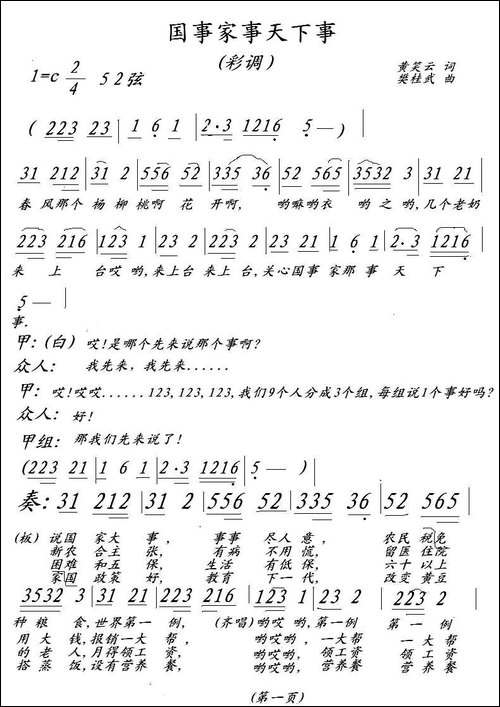 国事家事天下事
(彩调)
1=c 2/4 5 2弦
黄笑云 词
樊桂武 曲
( 223 23 | 1 6 1 | 2·3 1216 | 5 — )
31 212 | 31 2 | 556 52 | 335 36 | 52 565 | 3532 3 | 31 21
春风那个 杨柳桃啊 花 开啊, 哟嘛哟衣 哟之哟,几个老奶
223 216 | 123 1 | 23 2 | 223 23 | 21 21 | 1 6 1 | 2·3 1216
来 上 台哎哟,来上台 来上台,关心国事 家那事 天 下
5 —
事.
甲:(白) 哎!是哪个先来说那个事啊?
众人: 我先来,我先来......
甲: 哎!哎哎......123,123,123,我们9个人分成3个组,每组说1个事好吗?
众人: 好!
甲组: 那我们先来说了!
(223 21 | 1 6 1 | 2·3 1216 | 5 — )
奏: 31 212 | 31 2 | 556 52 | 335 36 | 52 565
(板) 说国 家大 事, 事事 尽人 意, 农民 税免
新农 合主 张, 有病 不用 慌, 留医 住院
困难 和五 保, 生活 有低 保, 六十 以上
家国 政策 好, 教育 下一代, 改变 黄豆
3532 3 | 31 21 | 223 216 | 123 1 | 23 2 | 223 2
种粮 食,世界第一 例, (齐唱)哟哎哟,第一例 第一例
用大 钱,报销一大 帮, 哟哎哟,一大帮 一大帮
的老 人,月得领工 资, 哟哎哟,领工资 领工资
搭蒸 饭,设有营养 餐, 哟哎哟,营养餐 营养餐
(第一页)